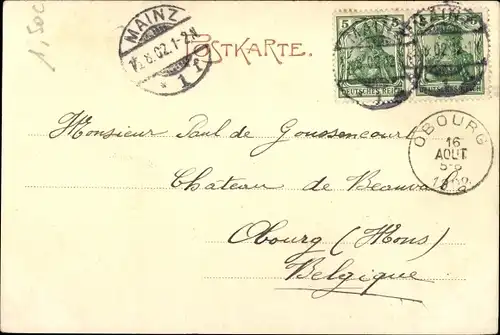 1,50c
MAINZ
15.8.02.1-2N
1 f
POSTKARTE.
5
DEUTSCHES REICH
MAINZ
DEUTSCHES REICH
OBOURG
16
AOUT
1902
Monsieur Paul de Goussencourt
Chateau de
Obourg (Mons)
Belgique